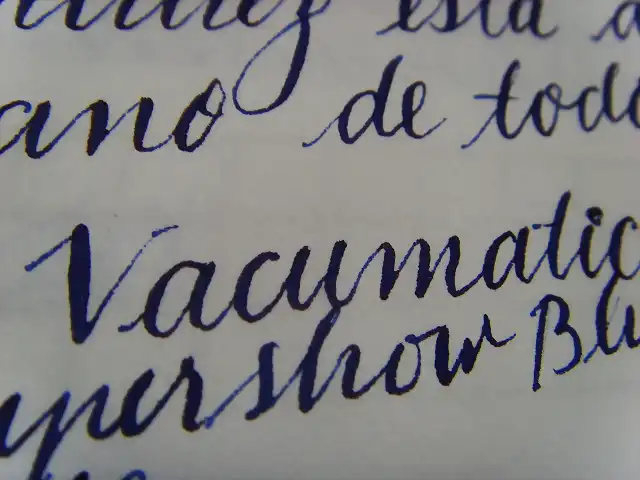 está a
ano de todo
Vacumatic
upershow Blu